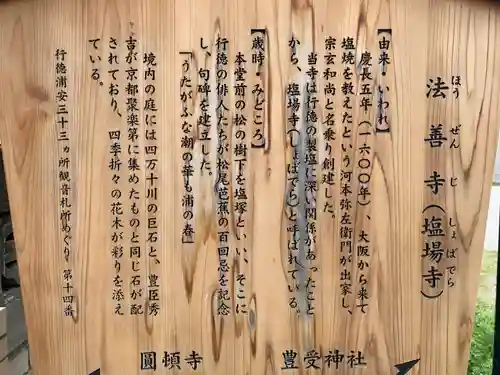 法善寺(塩場寺)
ほう ぜん じ しょばでら
【由来・いわれ】
慶長五年(一六〇〇年)、大阪から来て
塩焼を教えたという河本弥左衛門が出家し、
宗玄和尚と名乗り創建した。
当寺は行徳の製塩に深い関係があったこと
から、塩場寺(しょばでら)と呼ばれている。
【歳時・みどころ】
本堂前の松の樹下を塩塚といい、そこに
行徳の俳人たちが松尾芭蕉の百回忌を記念
し、句碑を建立した。
「うたがふな潮の華も浦の春」
境内の庭には四万十川の巨石と、豊臣秀
吉が京都聚楽第に集めたものと同じ石が配
されており、四季折々の花木が彩りを添え
ている。
行徳浦安三十三ヵ所観音札所めぐり 第十四番
圓頓寺
豊受神社